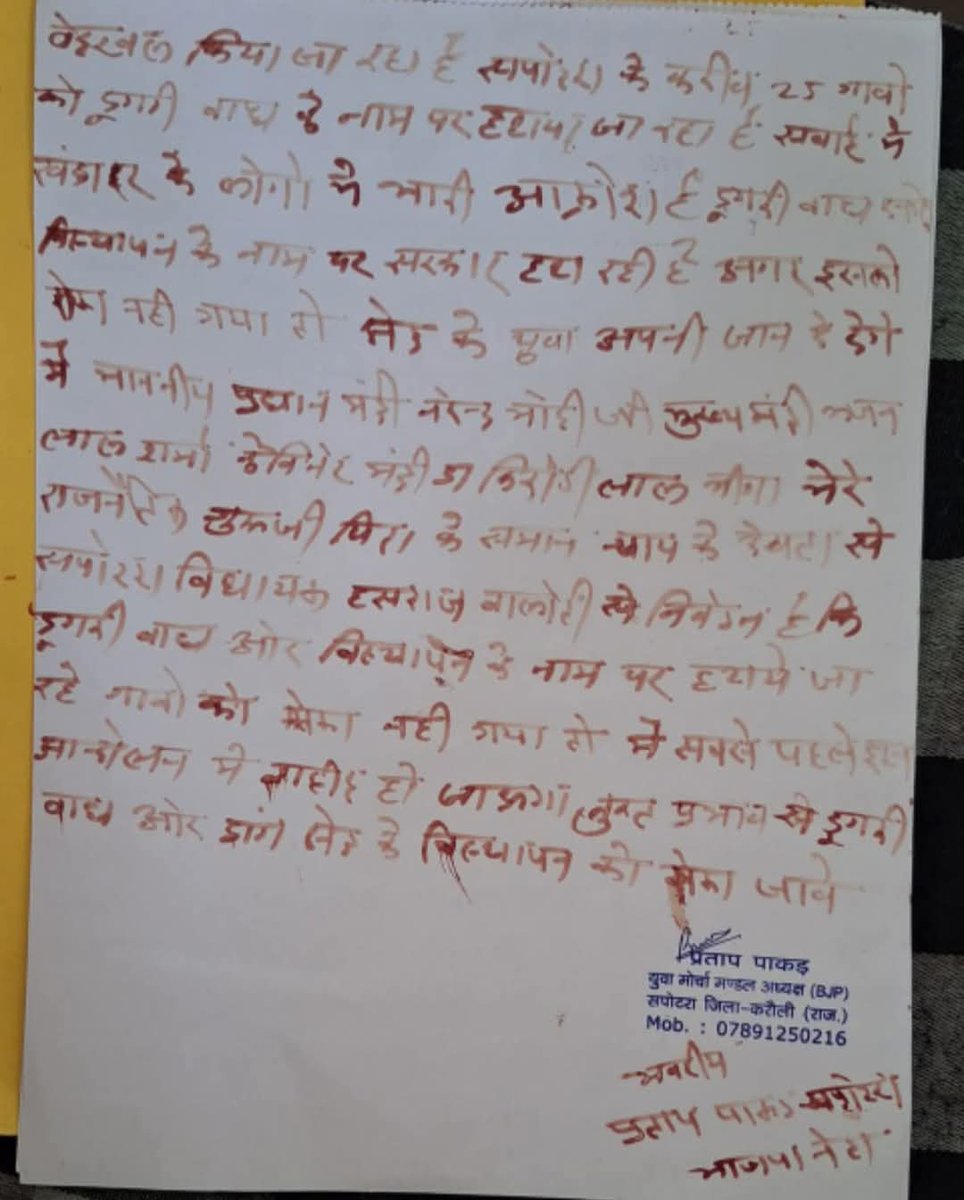 वेदखल किया जा रहा है सपोटरा के करीब 25 गावो
को डूगरी बाध के नाम पर हटाया जा रहा है सवाई मे
खंडार के लोगो मे भारी आक्रोश है डूगरी बाध
विस्थापन के नाम पर सरकार हटा रही है अगर इसको
रोका नही गया तो क्षेत्र के युवा अपनी जान दे देगे
मै माननीय प्रधान मंत्री नरेन्द्र मोदी जी मुख्यमंत्री भजन
लाल शर्मा केबिनेट मंत्री डा किरोडी लाल मीणा मेरे
राजनैतिक गुरूजी पिता के समान न्याय के देवता से
सपोटरा विधायक हसराज बालोती से निवेदन है कि
डूगरी बाध ओर विस्थापन के नाम पर हटाये जा
रहे गावो को रोका नही गया तो मै सबसे पहले इस
आन्दोलन मे शहीद हो जाऊगा तुरन्त प्रभाव से डूगरी
बाध ओर डांग क्षेत्र के विस्थापन को रोका जावे
प्रताप पाकड़
युवा मोर्चा मण्डल अध्यक्ष (BJP)
सपोटरा जिला-करौली (राज.)
Mob. : 07891250216
भवदीय
प्रताप पाकड सपोटरा
भाजपा नेता